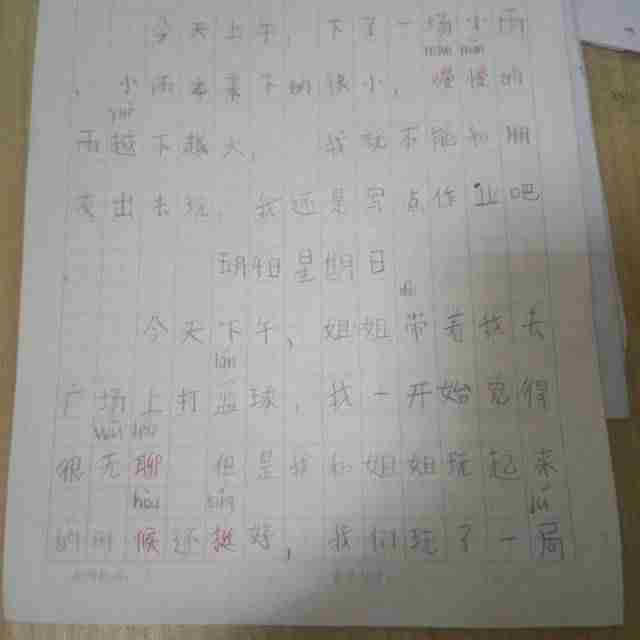 今天上午，下了一场小雨
màn màn
，小雨本来下的很小，慢慢的
yuè
雨越下越大，我就不能和朋
友出去玩，我还是写点作业吧
星期日
今天下午，姐姐带着我去
lán
广场上打蓝球，我一开始觉得
很无聊 但是我和姐姐玩起来
hòu tǐng jú
的时候还挺好，我们玩了一局